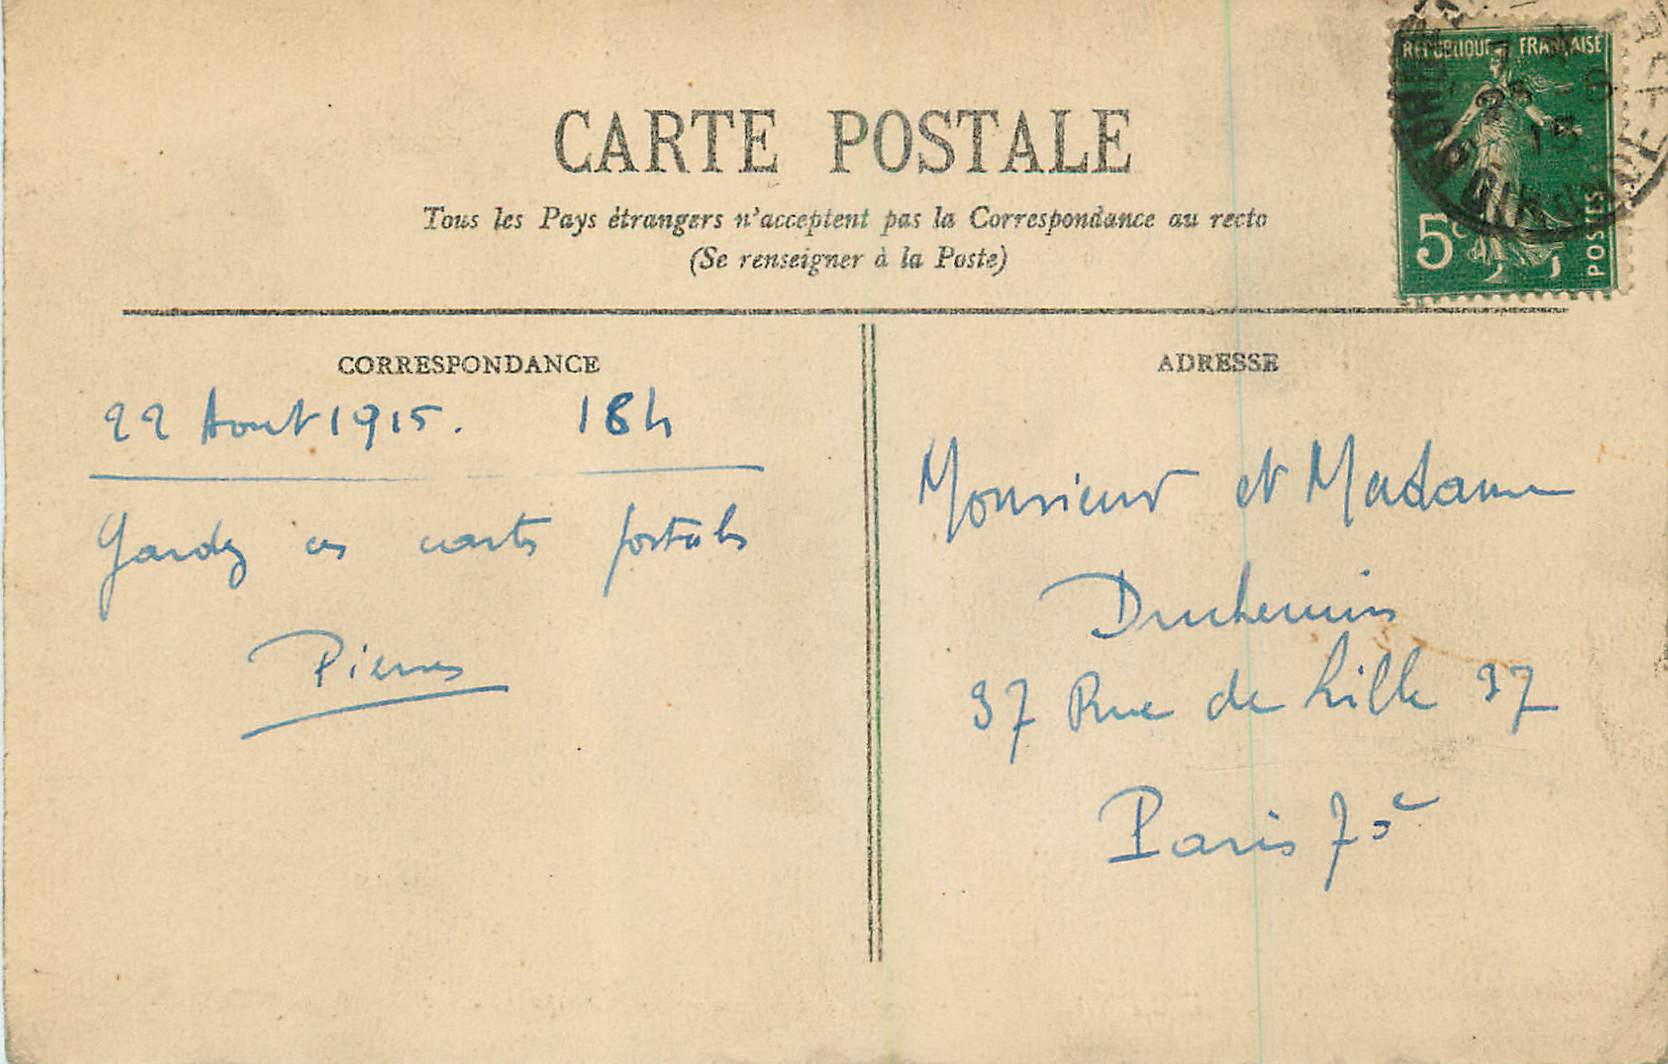 CARTE POSTALE
Tous les Pays étrangers n'acceptent pas la Correspondance au recto
(Se renseigner à la Poste)
REPUBLIQUE FRANÇAISE
5c
POSTES
CORRESPONDANCE
22 Aout 1915. 18h
Gardez ces cartes postales
Pierre
ADRESSE
Monsieur et Madame
Duchemin
37 Rue de Lille 37
Paris 7e